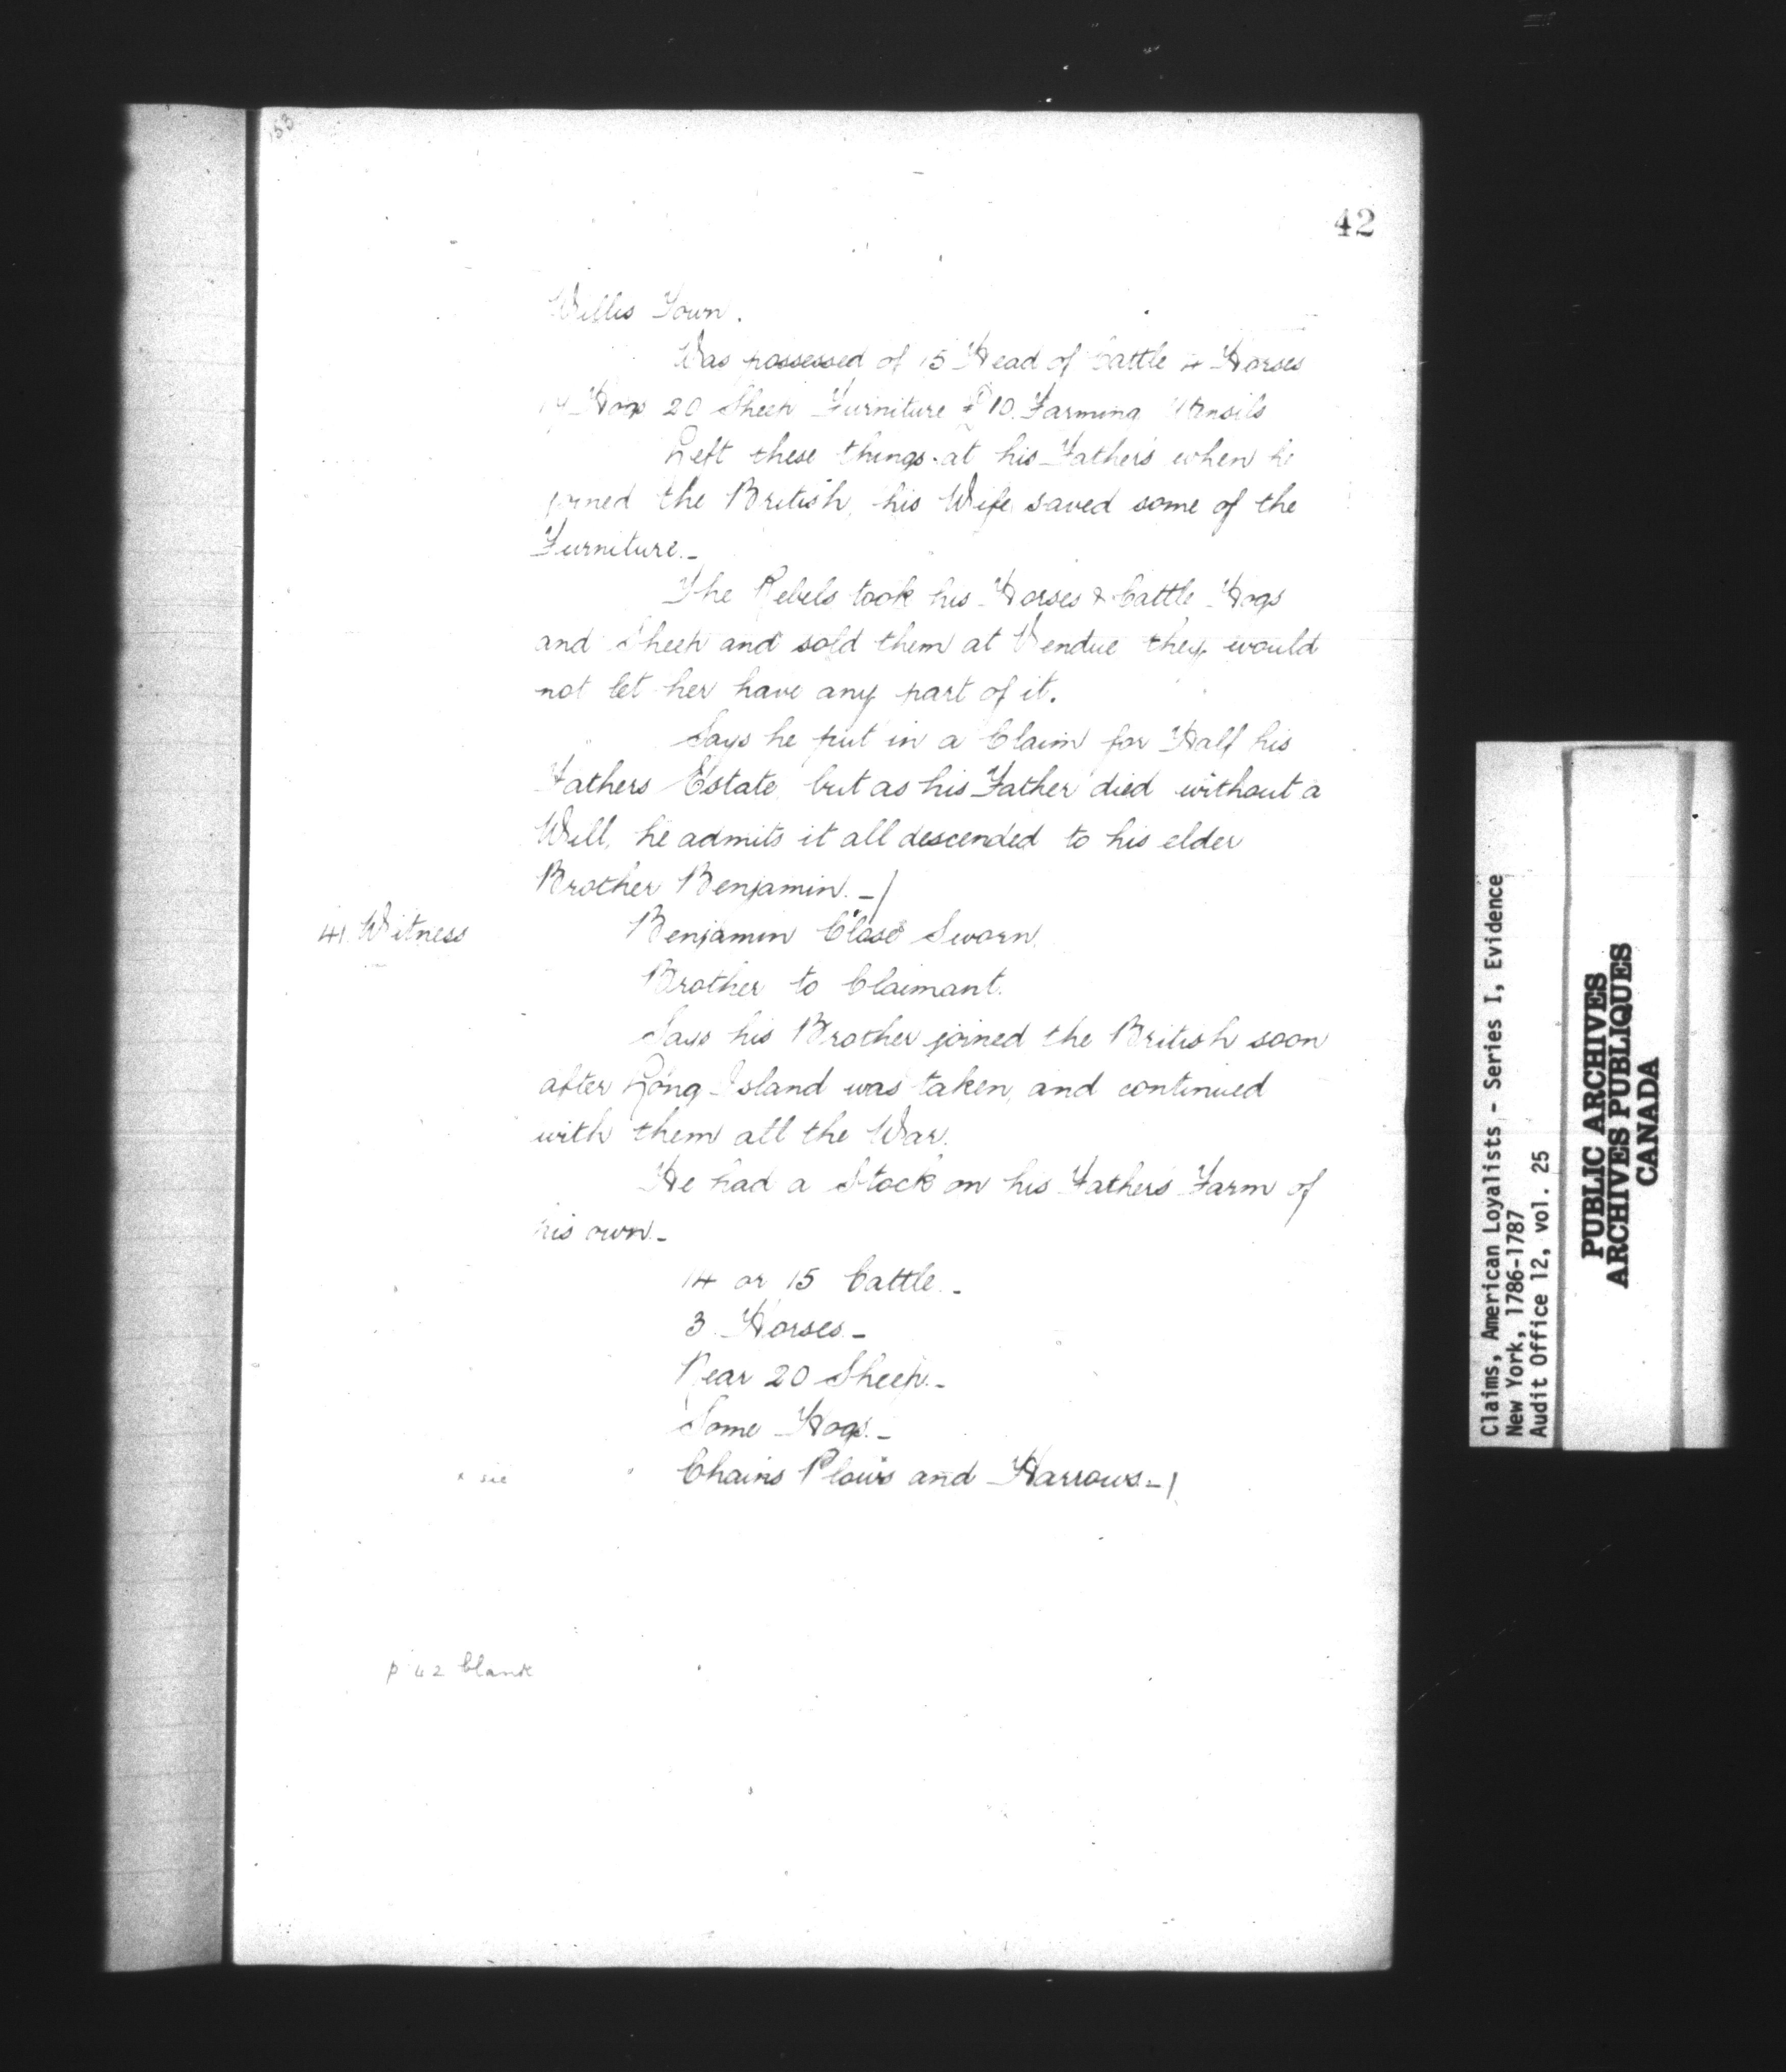 42
Willis Town.
Was possessed of 15 Head of Cattle 4 Horses
Hogs 20 Sheep Furniture £10. Farming Utensils
Left these things at his Fathers when he
joined the British, his Wife saved some of the
Furniture._
The Rebels took his Horses & Cattle Hogs
and Sheep and sold them at Vendue they would
not let her have any part of it.
Says he put in a Claim for Half his
Fathers Estate but as his Father died without a
Will, he admits it all descended to his elder
Brother Benjamin._/
41. Witness
Benjamin Close Sworn.
Brother to Claimant.
Says his Brother joined the British soon
after Long Island was taken, and continued
with them all the War.
He had a Stock on his Fathers Farm of
his own._
14 or 15 Cattle._
3 Horses_
Near 20 Sheep._
Some Hogs._
x sic
Chains Plows and Harrows_/
p 42 blank
Claims, American Loyalists - Series I, Evidence
New York, 1786-1787
Audit Office 12, vol. 25
PUBLIC ARCHIVES
ARCHIVES PUBLIQUES
CANADA